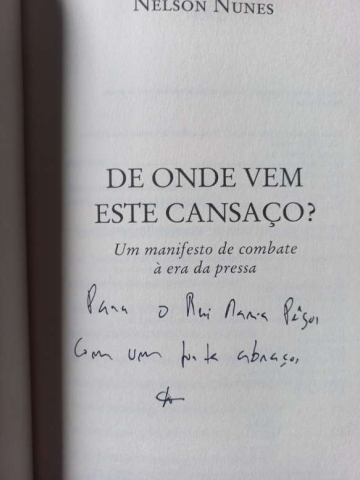 NELSON NUNES
DE ONDE VEM
ESTE CANSAÇO?
Um manifesto de combate
à era da pressa
Para o Rui Maria Pêgo,
Com um forte abraço,